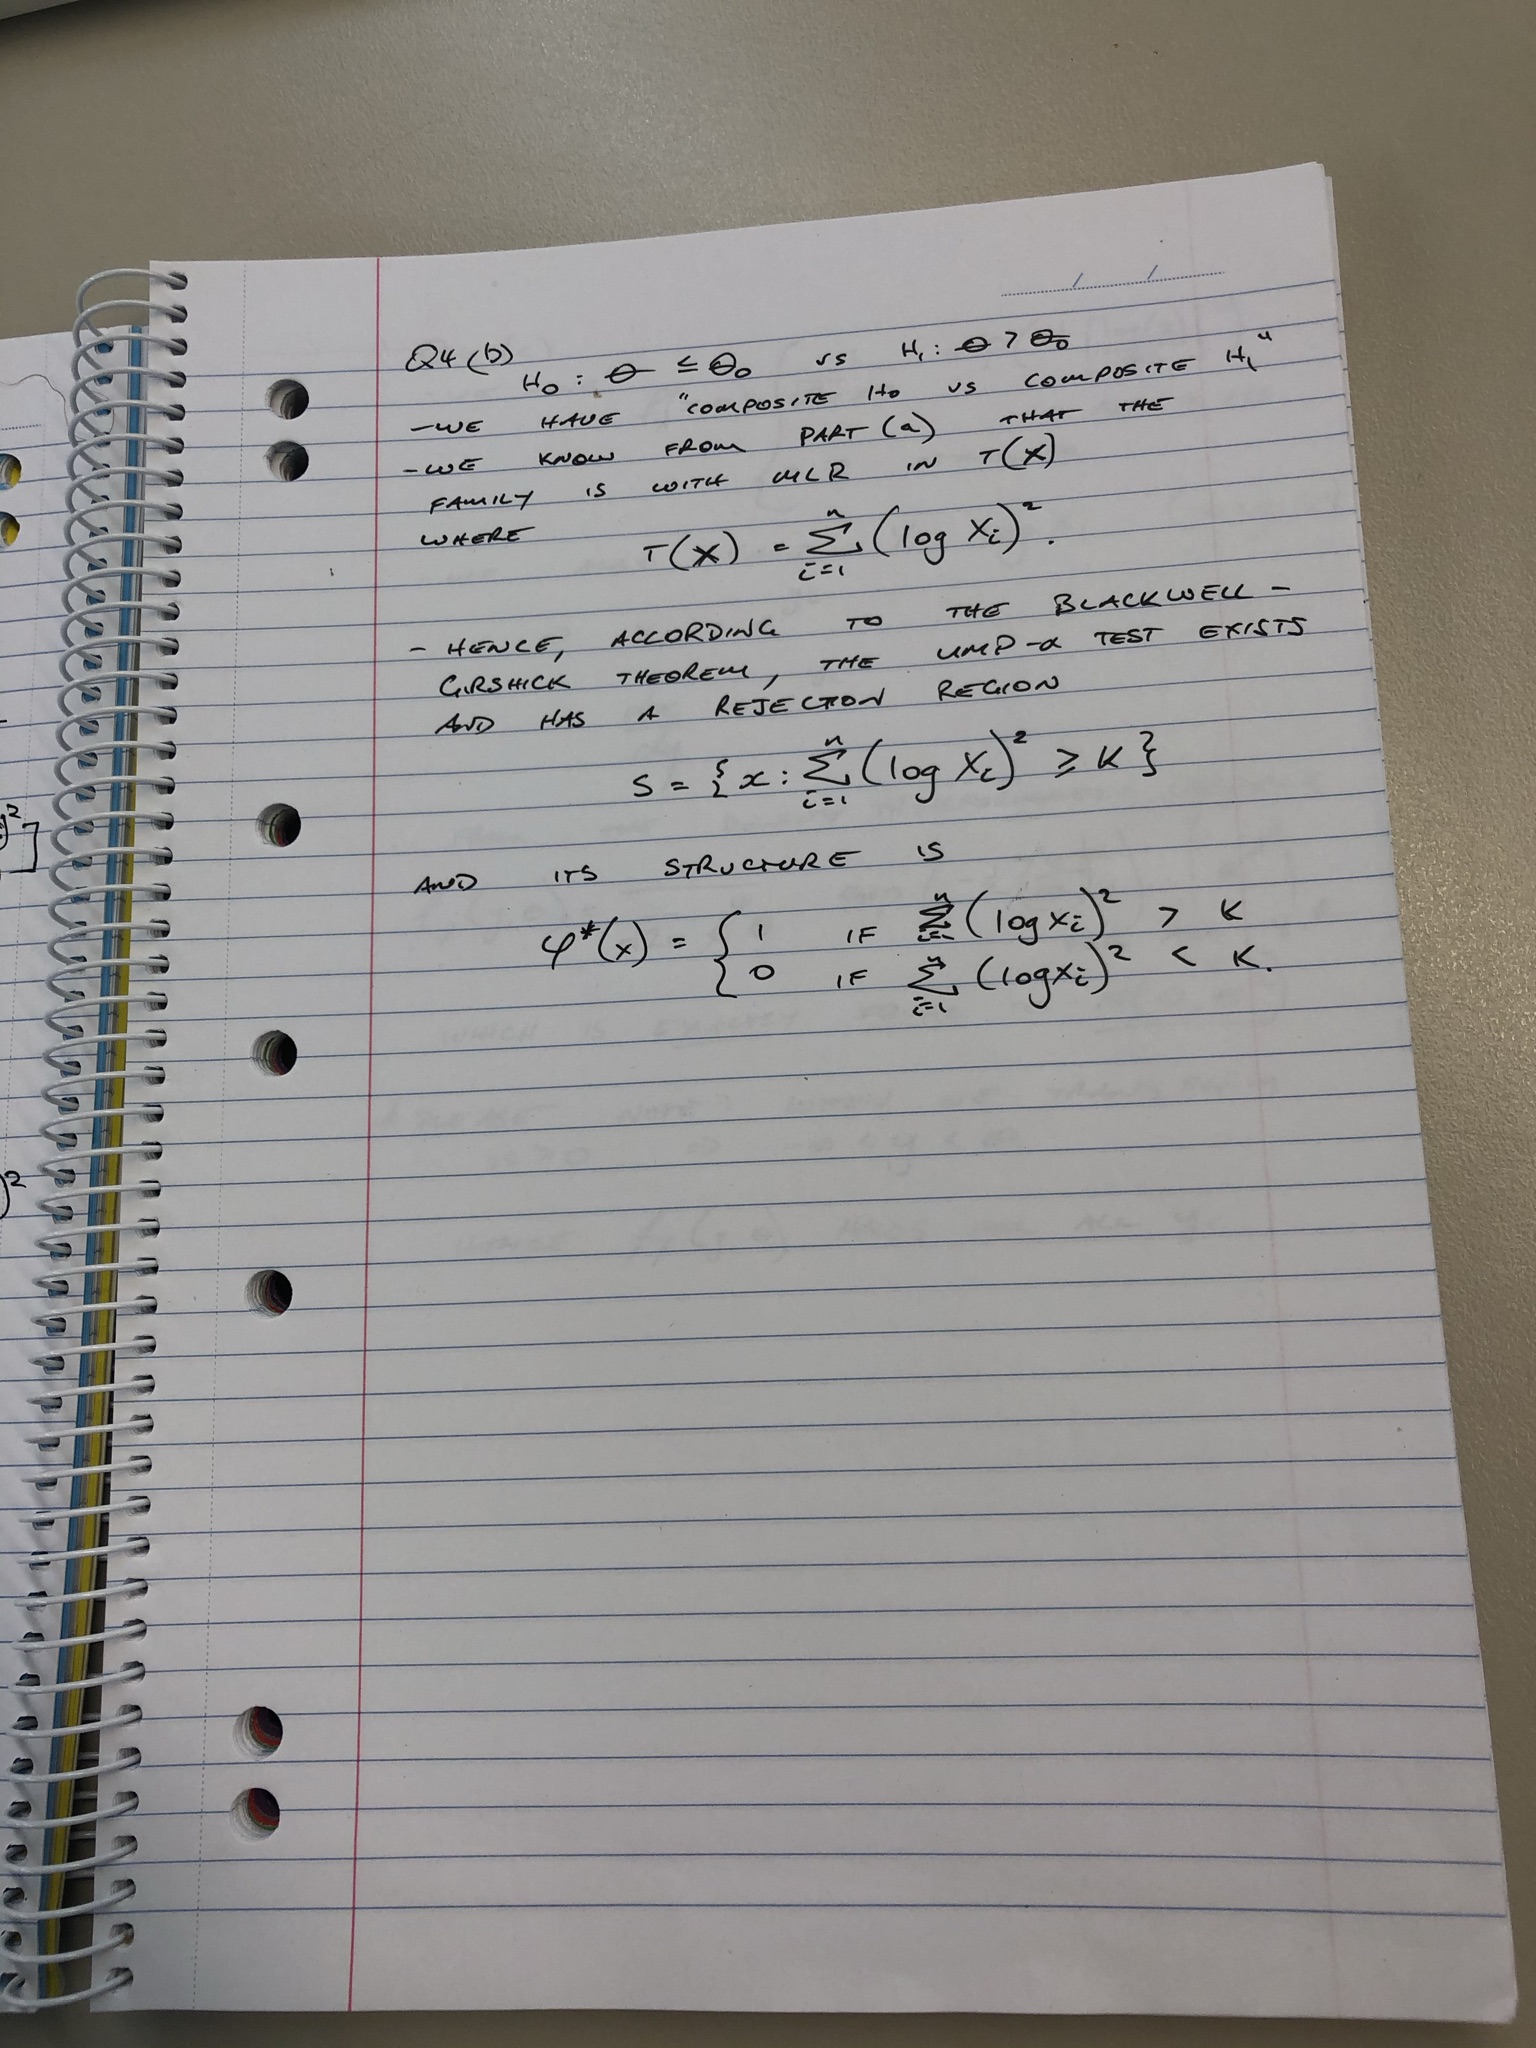 Q4 (b)
H₀ : θ ≤ θ₀ vs H₁ : θ > θ₀
- WE HAVE "COMPOSITE H₀ VS COMPOSITE H₁"
- WE KNOW FROM PART (a) THAT THE
FAMILY IS WITH MLR IN T(X)
WHERE
T(X) = ∑ᵢ₌₁ⁿ (log Xᵢ)².
- HENCE, ACCORDING TO THE BLACKWELL -
GIRSHICK THEOREM, THE UMP-α TEST EXISTS
AND HAS A REJECTION REGION
S = { x : ∑ᵢ₌₁ⁿ (log Xᵢ)² ≥ K }
AND ITS STRUCTURE IS
φ*(x) = { 1 IF ∑ᵢ₌₁ⁿ (log xᵢ)² > K
0 IF ∑ᵢ₌₁ⁿ (log xᵢ)² < K.